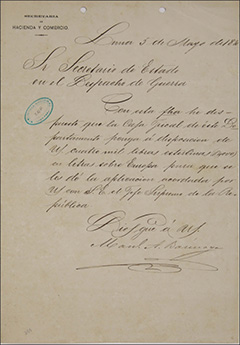 SECRETARIA
DE
HACIENDA Y COMERCIO
Lima 5 de Mayo de 188
Sr. Secretario de Estado
en el Despacho de Guerra
Con esta fha he dis-
puesto que la Caja Fiscal de este De-
partamento ponga a disposicion de
US cuatro mil libras esterlinas
en letras sobre Europa para que se
les dé la aplicacion acordada por
US con S.E. el Jefe Supremo de la Re-
pública
Dios gue á US.
Manl. A. Barinaga